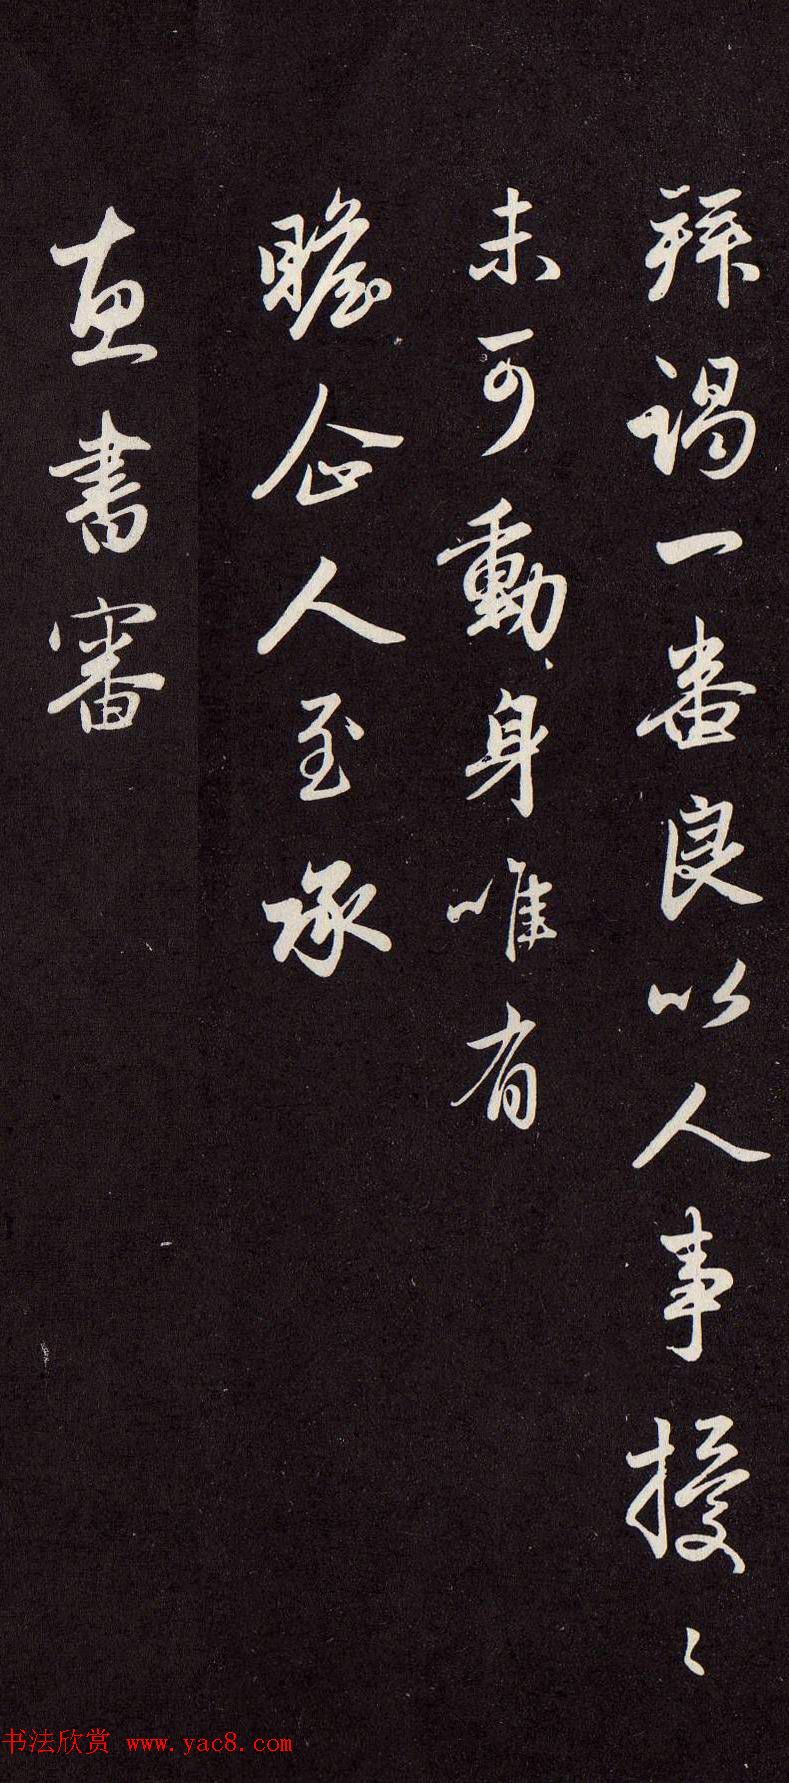 拜谒一番良以人事擾〻
未可動身唯有
瞻企人至承
惠書審
书法欣赏 www.yac8.com